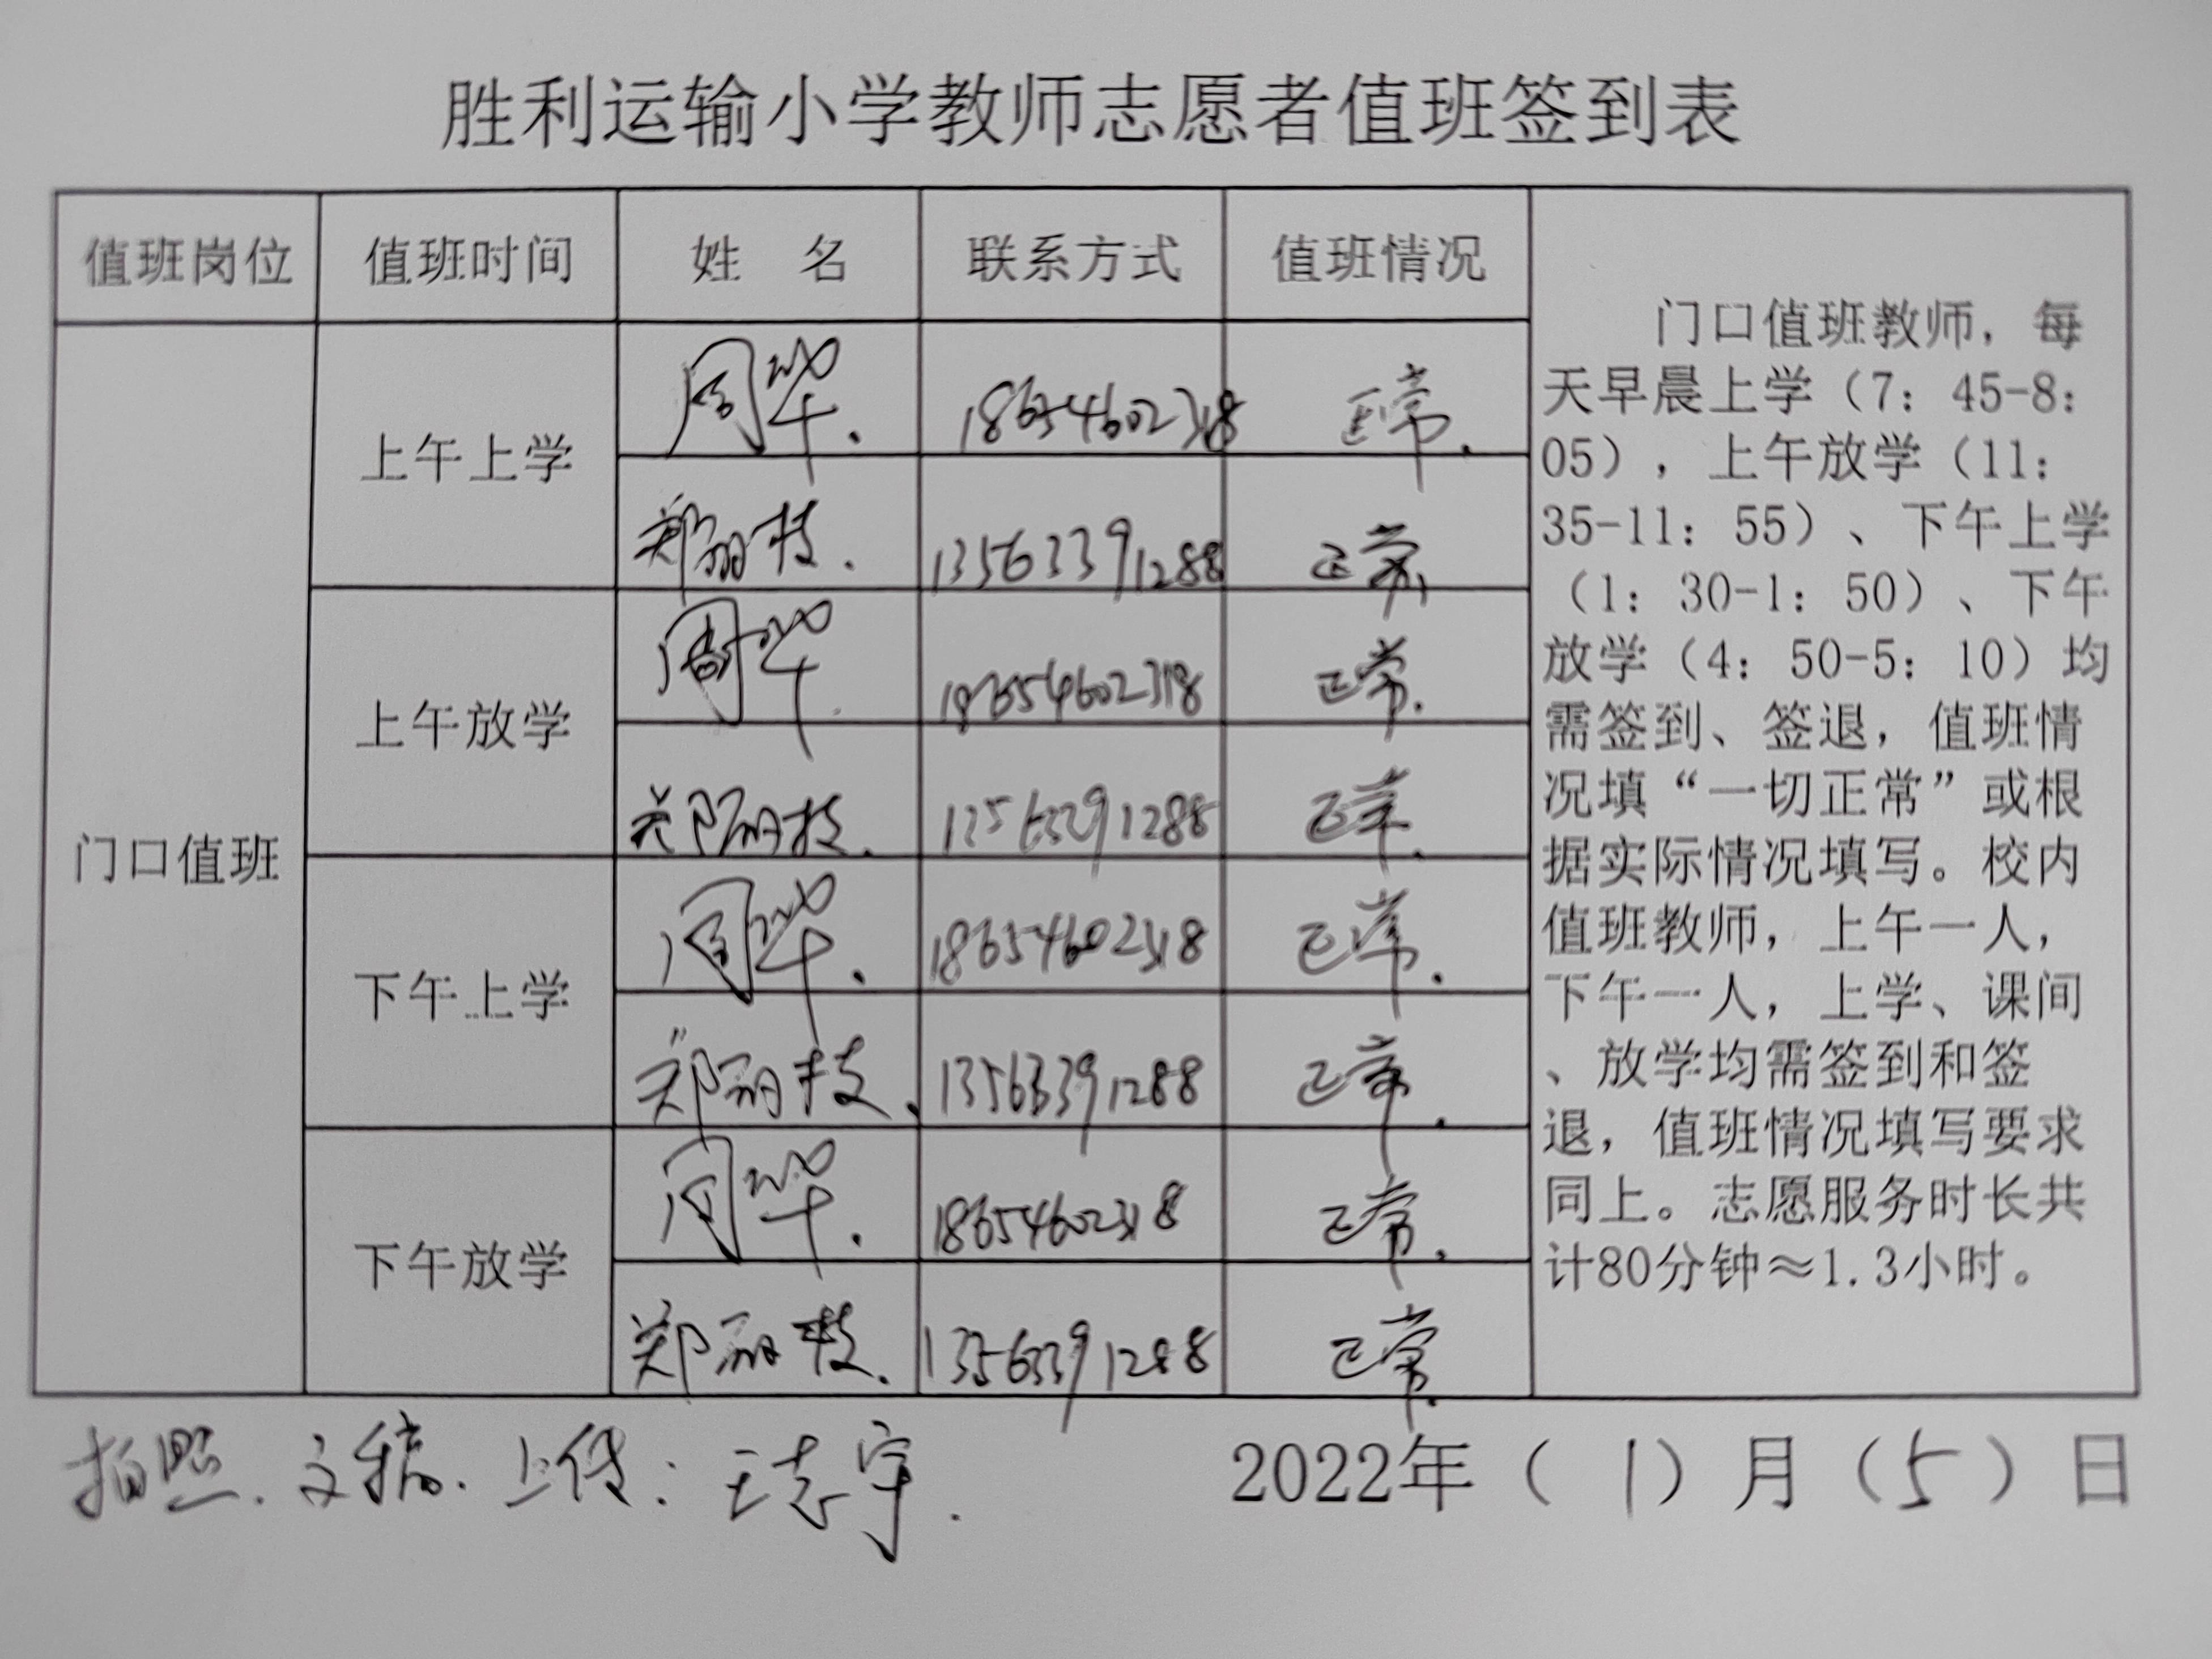 胜利运输小学教师志愿者值班签到表
值班岗位 值班时间 姓 名 联系方式 值班情况
门口值班
上午上学
周华. 18654602318 正常.
郑丽枝. 13563391288 正常.
上午放学
周华. 18654602318 正常.
郑丽枝. 13563391288 正常.
下午上学
周华. 18654602318 正常.
郑丽枝. 13563391288 正常.
下午放学
周华. 18654602318 正常.
郑丽枝. 13563391288 正常.
门口值班教师，每
天早晨上学（7：45-8：
05），上午放学（11：
35-11：55）、下午上学
（1：30-1：50）、下午
放学（4：50-5：10）均
需签到、签退，值班情
况填“一切正常”或根
据实际情况填写。校内
值班教师，上午一人，
下午一人，上学、课间
、放学均需签到和签
退，值班情况填写要求
同上。志愿服务时长共
计80分钟≈1.3小时。
拍照.文稿.上传：王志宇.
2022年（1）月（5）日